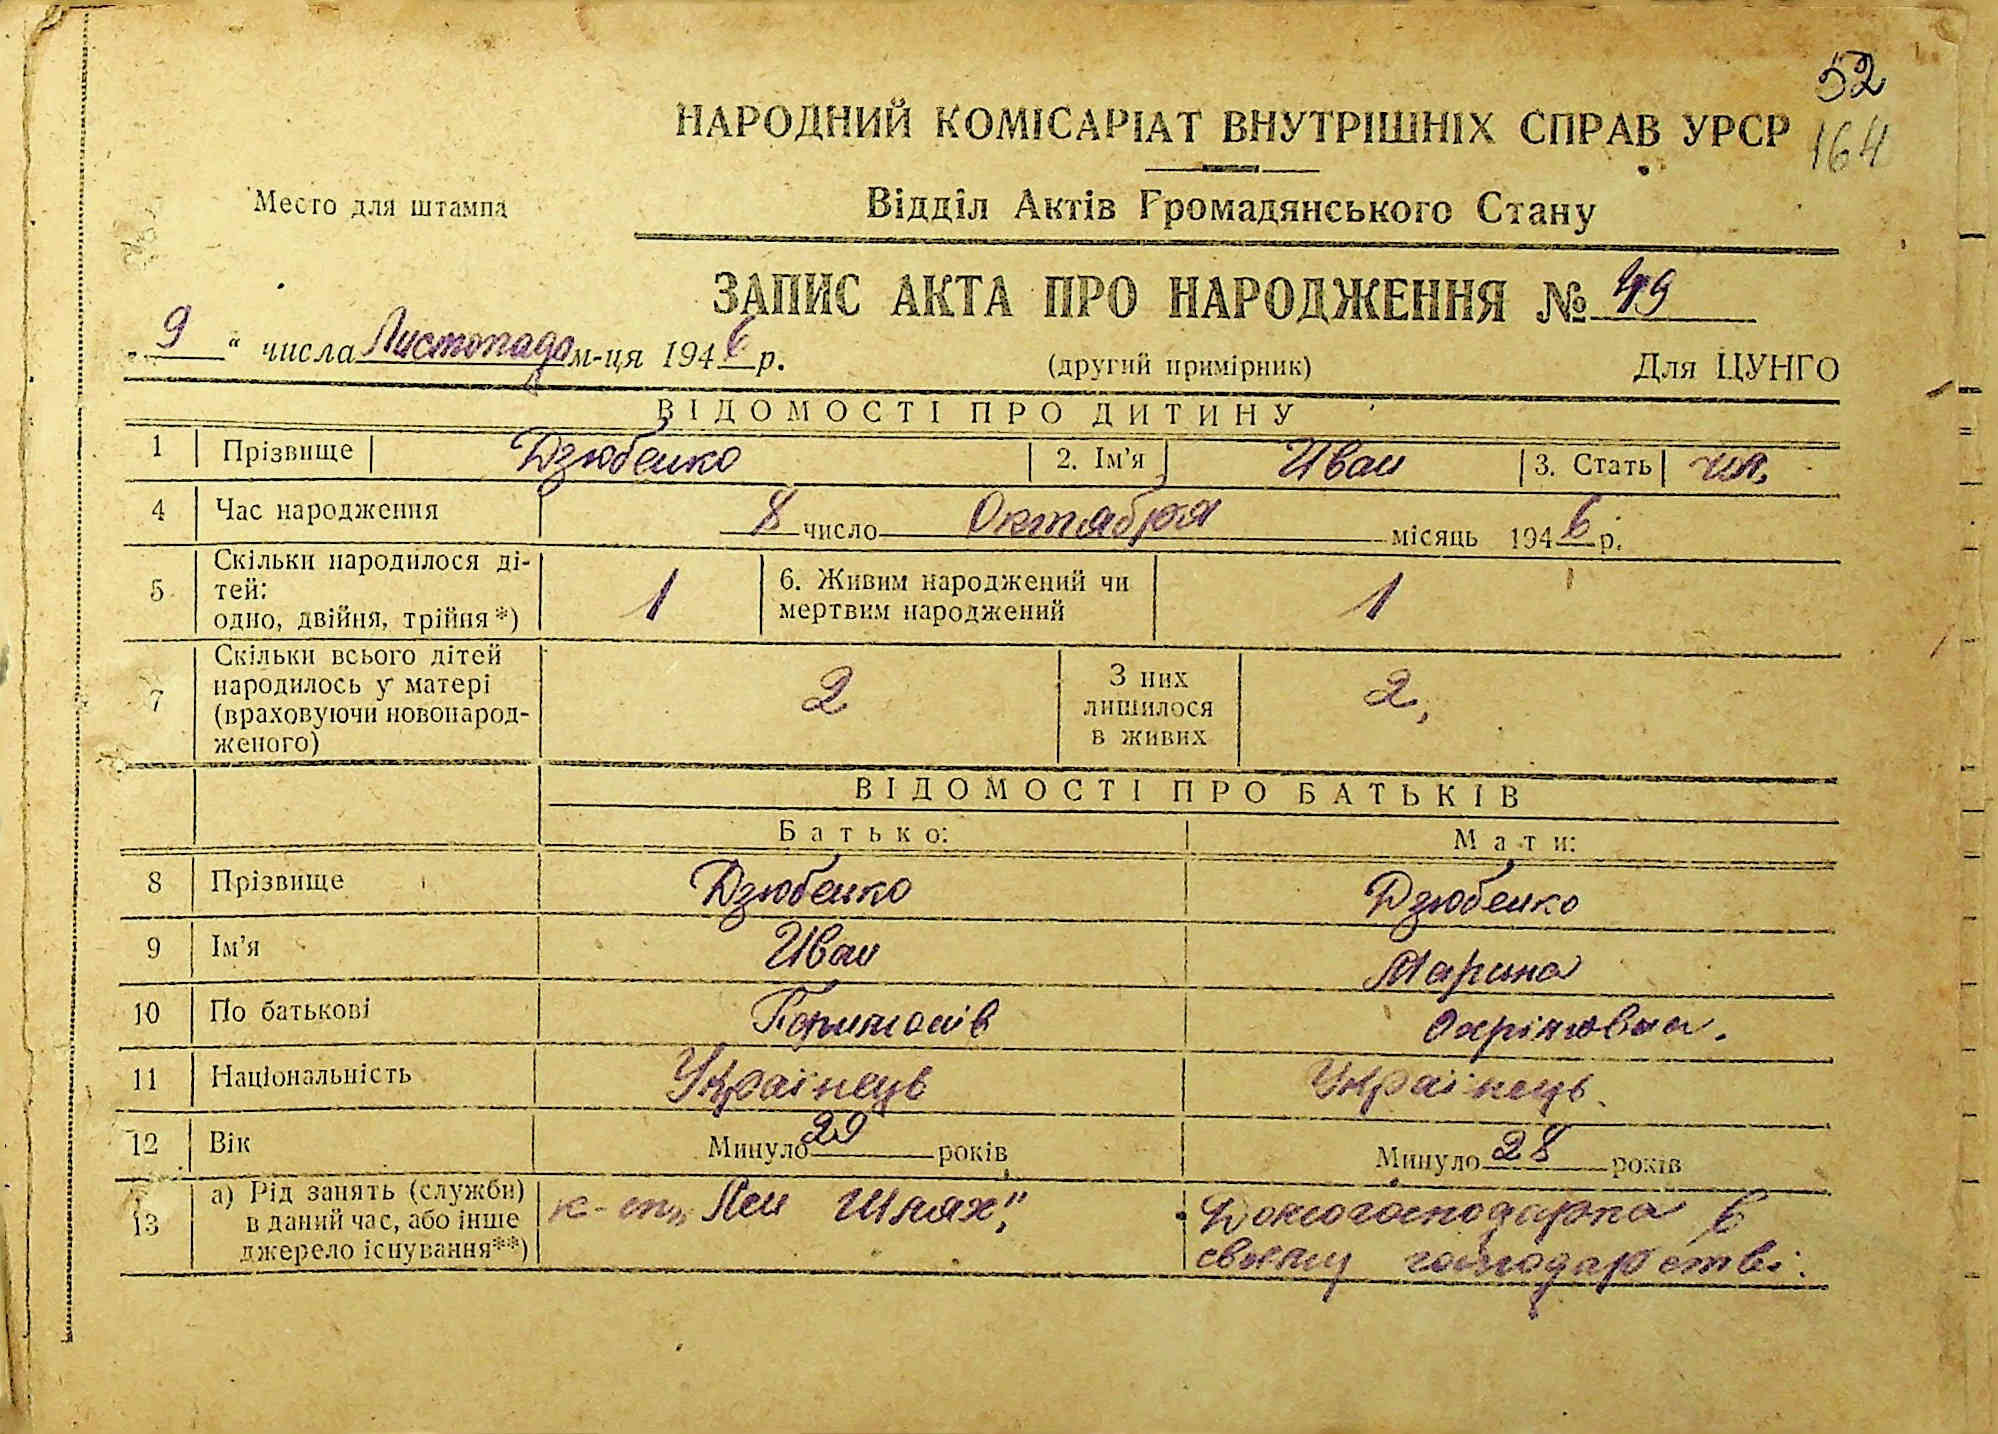 52
НАРОДНИЙ КОМІСАРІАТ ВНУТРІШНІХ СПРАВ УРСР
164
Место для штампа
Відділ Актів Громадянського Стану
ЗАПИС АКТА ПРО НАРОДЖЕННЯ № 49
„ 9 “ числа Листопада м-ця 1946 р.
(другий примірник)
Для ЦУНГО
ВІДОМОСТІ ПРО ДИТИНУ
1 Прізвище Дзюбенко 2. Ім’я Иван 3. Стать чл.
4 Час народження 8 число Октября місяць 1946 р.
5 Скільки народилося ді-
тей:
одно, двійня, трійня*) 1
6. Живим народжений чи
мертвим народжений 1
7 Скільки всього дітей
народилось у матері
(враховуючи новонарод-
женого) 2
З них
лишилося
в живих 2,
ВІДОМОСТІ ПРО БАТЬКІВ
Батько: Мати:
8 Прізвище Дзюбенко Дзюбенко
9 Ім’я Иван Марина
10 По батькові
11 Національність Українець Українець
12 Вік Минуло 29 років Минуло 28 років
13 а) Рід занять (служби)
в даний час, або інше
джерело існування**)
к-сп „ Шлях"
Домогосподарка в
своєму господарстві.